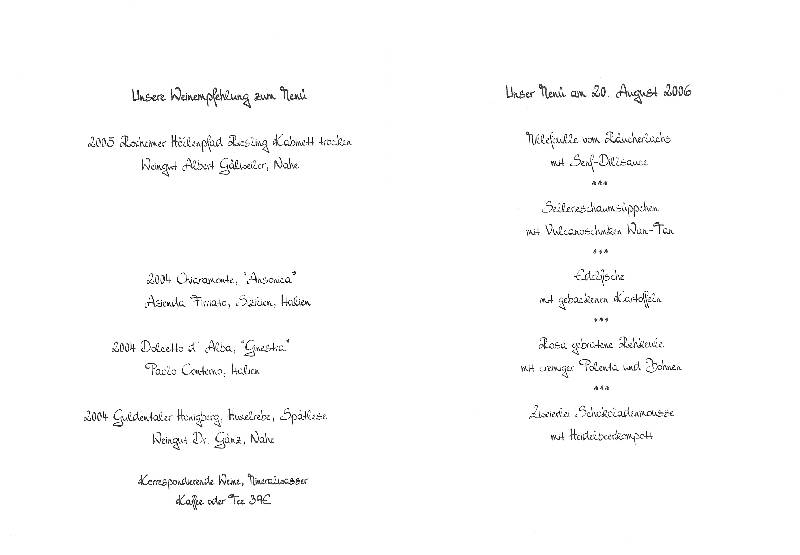 Unsere Weinempfehlung zum Menü
2005 Roxheimer Höllenpfad Riesling Kabinett trocken
Weingut Albert Gälweiler, Nahe
2004 Chiaramonte, "Ansonica"
Azienda Firriato, Sizilien, Italien
2004 Dolcetto d' Alba, "Ginestra"
Paolo Conterno, Italien
2004 Guldentaler Honigberg, Huxelrebe, Spätlese
Weingut Dr. Gänz, Nahe
Korrespondierende Weine, Mineralwasser
Kaffee oder Tee 39€
Unser Menü am 20. August 2006
Millefeuille vom Räucherlachs
mit Senf-Dillsauce
***
Sellerieschaumsüppchen
mit Vulcanoschinken Wan-Tan
***
Edelfische
mit gebackenen Kartoffeln
***
Rosa gebratene Rehkeule
mit cremiger Polenta und Bohnen
***
Zweierlei Schokoladenmousse
mit Heidelbeerkompott